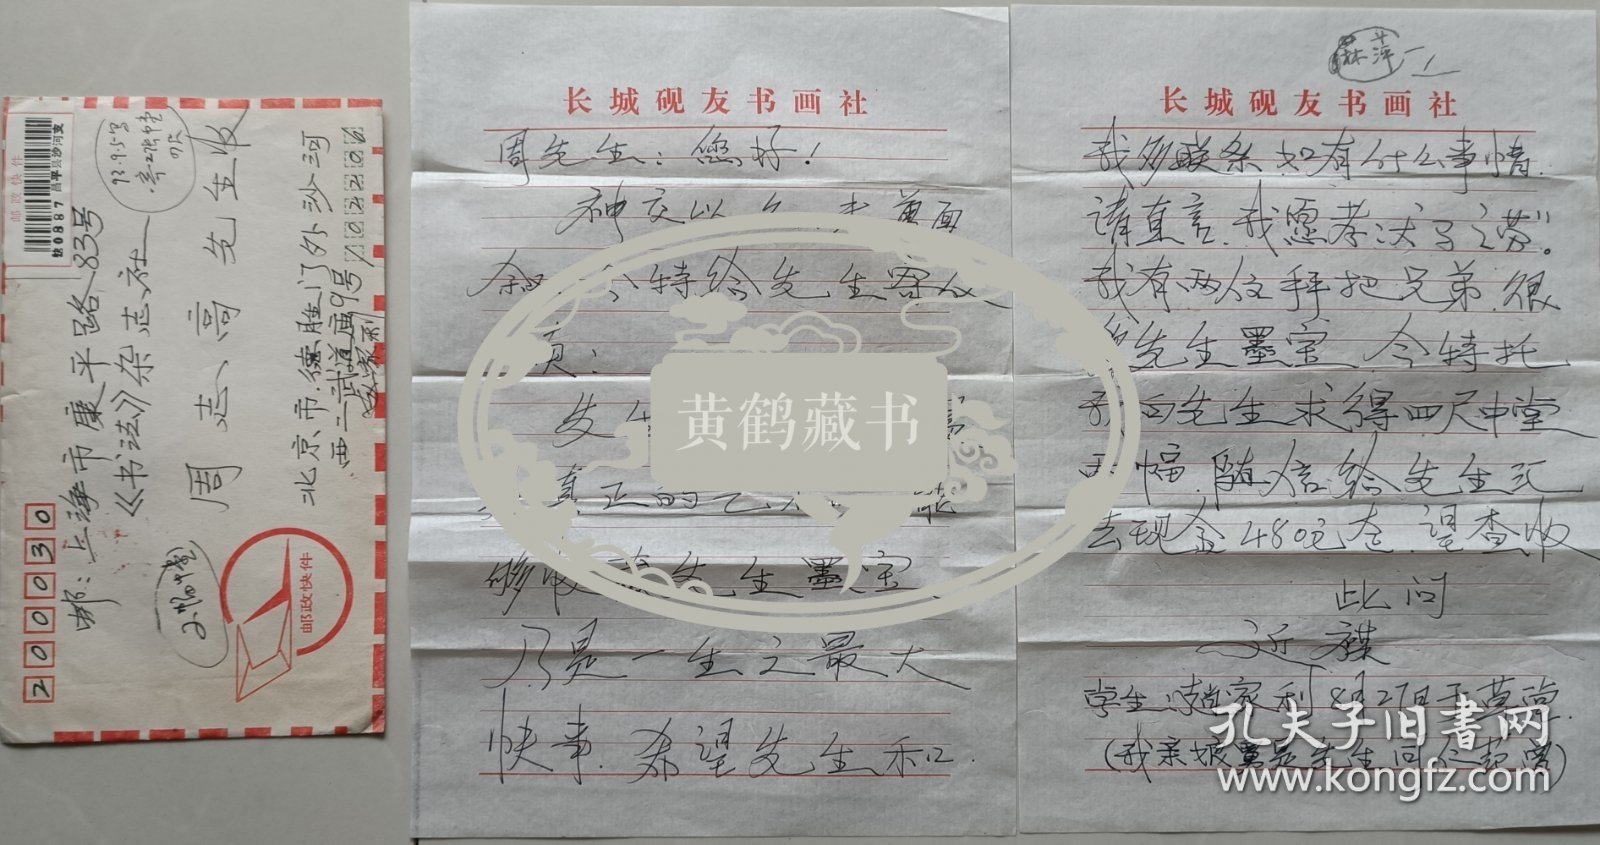 邮政快件
快0887 昌平县沙河支
93.9.5写
寄2张中堂
邮：上海市康平路83号
《书法》杂志社
周志高先生收
北京市德胜门外沙河
西二武道庙9号
赵家利
200030
102206
2幅中堂
邮政快件
长城砚友书画社
周先生：您好！
神交以久，未曾面
叙，今特给先生寄
真正的艺术
够收藏先生墨宝，
乃是一生之最大
快事。希望先生和
长城砚友书画社
我多联系，如有什么事情，
请直言，我愿孝犬马之劳。
我有两位拜把兄弟，很
爱先生墨宝，今特托
我向先生求得四尺中堂
两幅，随信给先生汇
去现金480元在，望查收
此问
近祺
学生：赵家利 8月27日于草堂
黄鹤藏书
孔夫子旧書网
www.kongfz.com